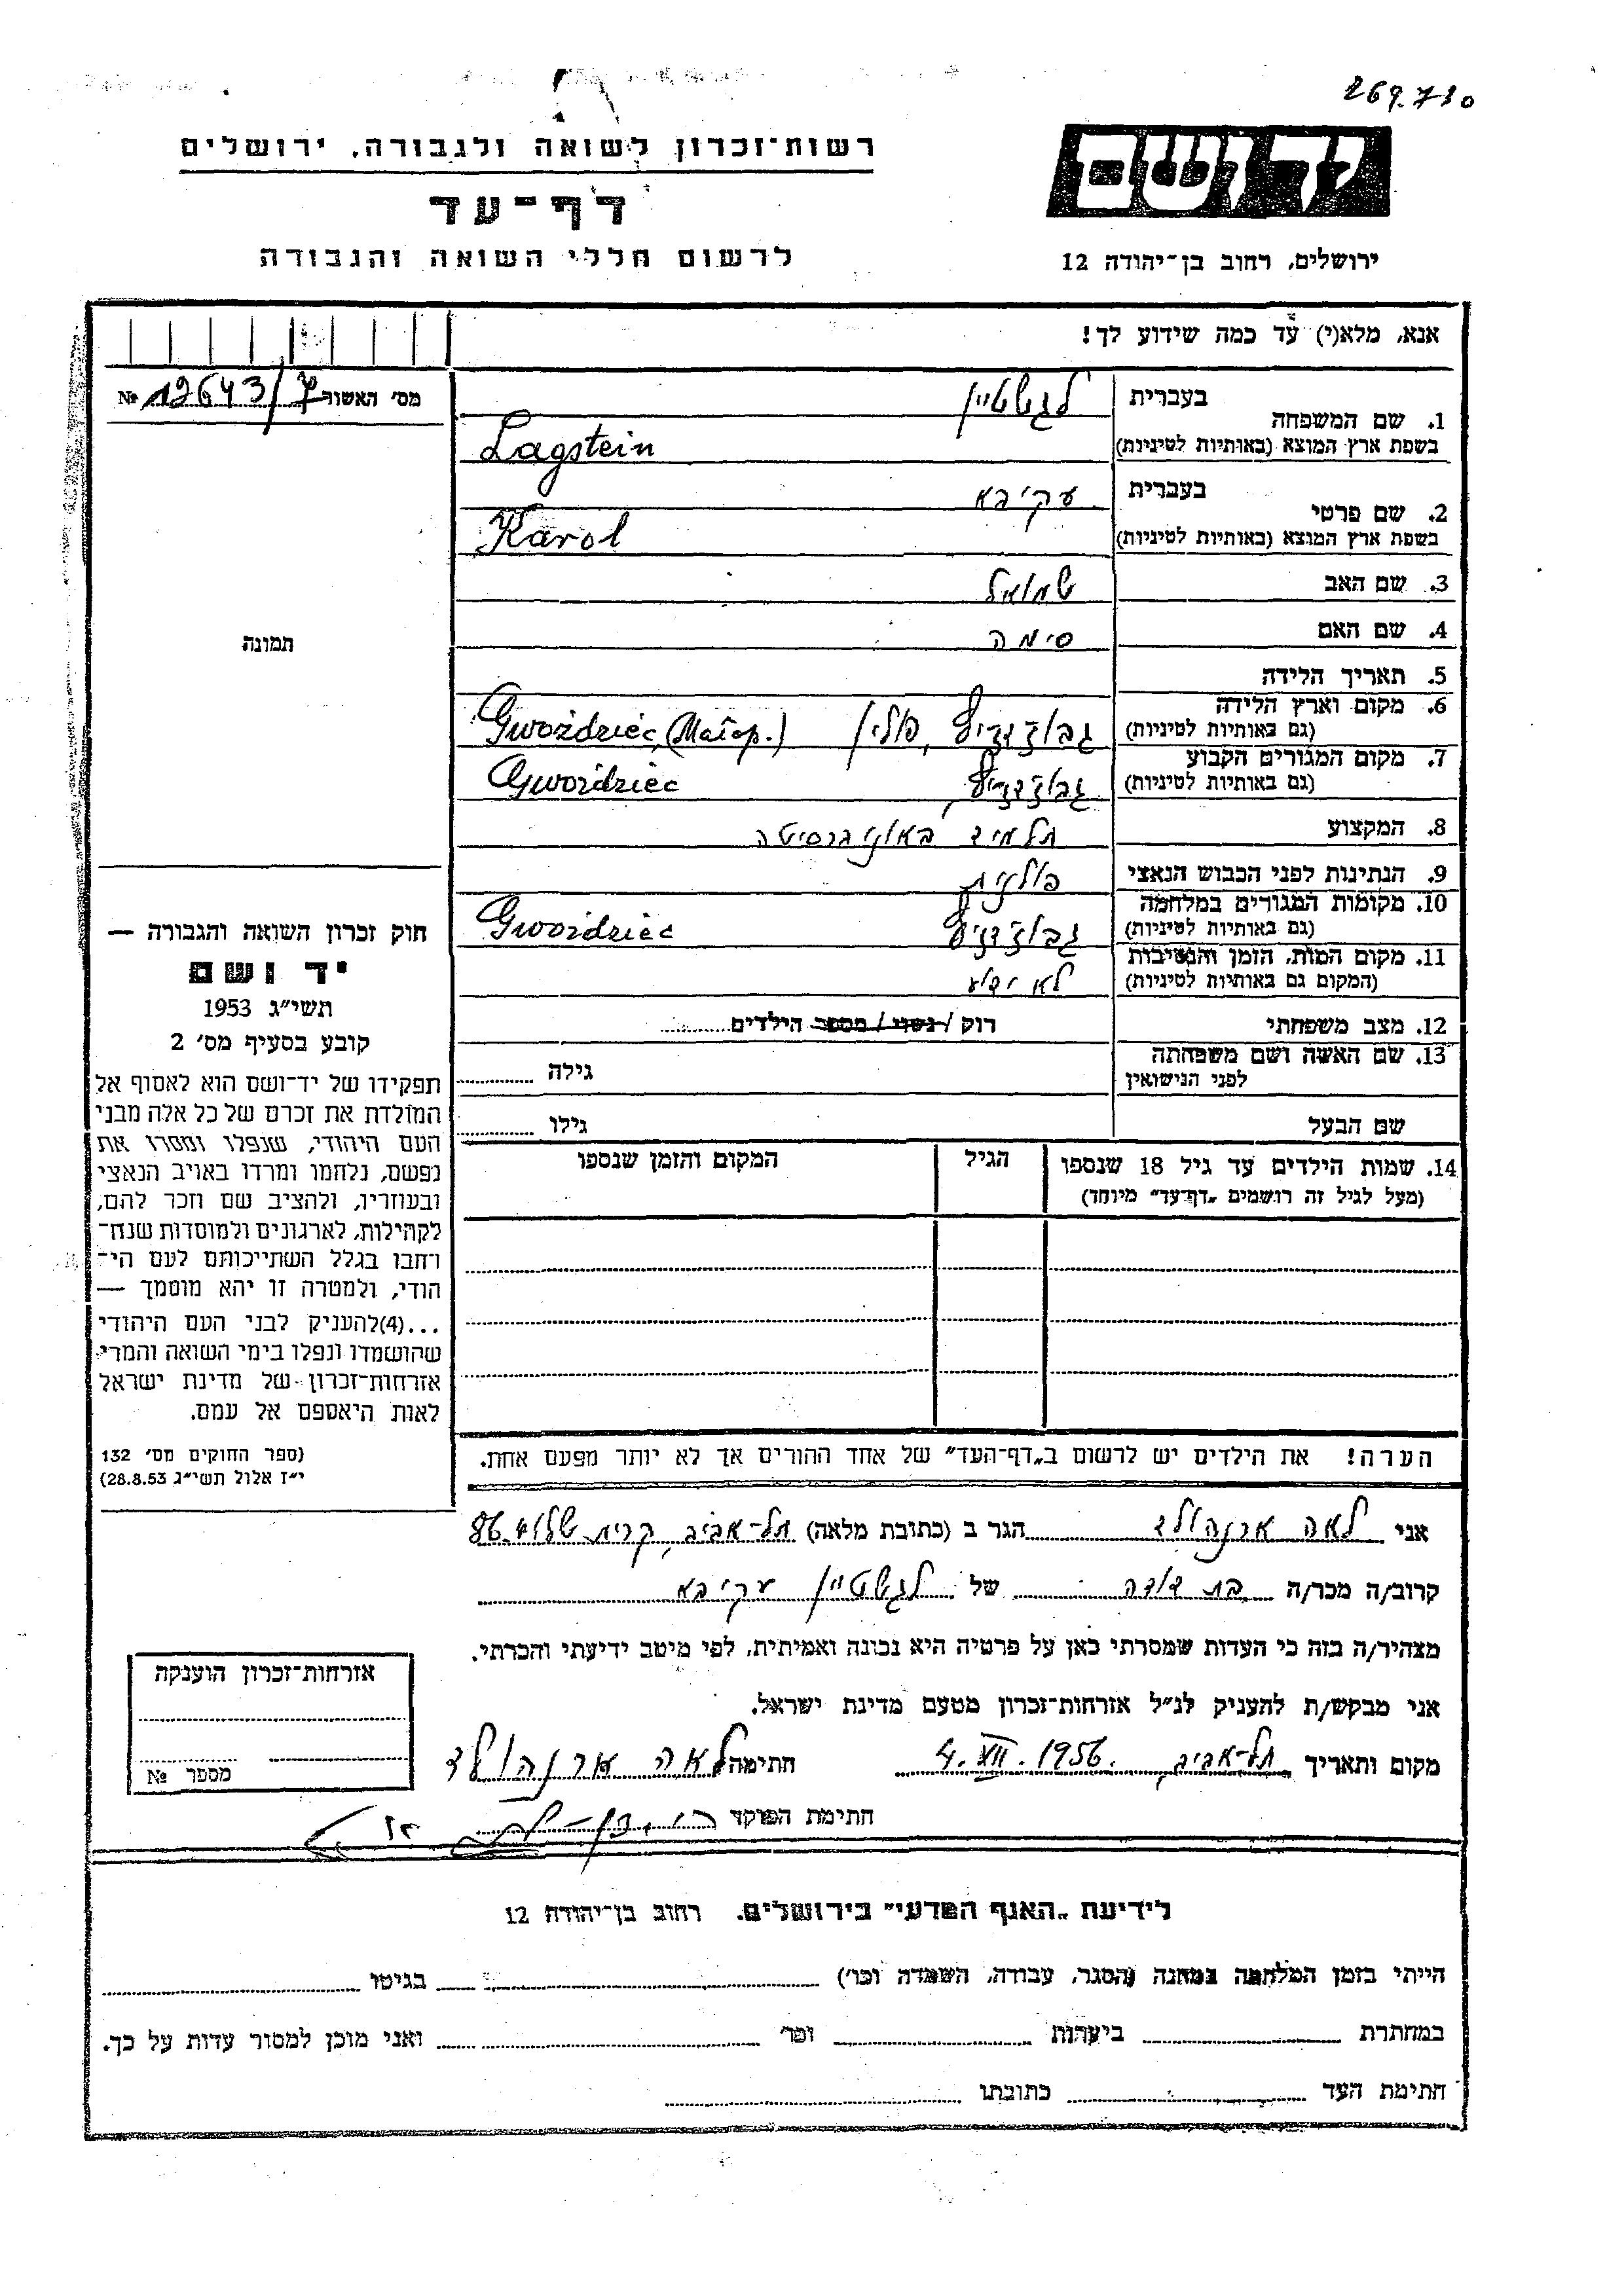 269.730
ידושם
רשות־זכרון לשואה ולגבורה, ירושלים
דף־עד
לרשום חללי השואה והגבורה
ירושלים, רחוב בן־יהודה 12
אנא, מלא(י) עד כמה שידוע לך!
מס׳ האשור № 12643/7
1. שם המשפחה בעברית לגשטיין
בשפת ארץ המוצא (באותיות לטיניות) Lagstein
2. שם פרטי בעברית עקיבא
בשפת ארץ המוצא (באותיות לטיניות) Karol
3. שם האב שמואל
4. שם האם סימה
תמונה
5. תאריך הלידה
6. מקום וארץ הלידה (גם באותיות לטיניות) גבוזדזיץ, פולין Gwoździec, (Małop.)
7. מקום המגורים הקבוע (גם באותיות לטיניות) גבוזדזיץ Gwoździec
8. המקצוע תלמיד באוניברסיטה
9. הנתינות לפני הכבוש הנאצי פולנית
10. מקומות המגורים במלחמה (גם באותיות לטיניות) גבוזדזיץ Gwoździec
11. מקום המות, הזמן והנסיבות (המקום גם באותיות לטיניות) לא ידוע
12. מצב משפחתי רוק / נשוי / מספר הילדים
13. שם האשה ושם משפחתה לפני הנישואין גילה
שם הבעל גילו
14. שמות הילדים עד גיל 18 שנספו הגיל המקום והזמן שנספו
(מעל לגיל זה רושמים „דף־עד״ מיוחד)
חוק זכרון השואה והגבורה —
יד ושם
תשי״ג 1953
קובע בסעיף מס׳ 2
תפקידו של יד־ושם הוא לאסוף אל
המולדת את זכרם של כל אלה מבני
העם היהודי, שנפלו ומסרו את
נפשם, נלחמו ומרדו באויב הנאצי
ובעוזריו, ולהציב שם וזכר להם,
לקהילות, לארגונים ולמוסדות שנח־
רחבו בגלל השתייכותם לעם הי־
הודי, ולמטרה זו יהא מוסמך —
...(4)להעניק לבני העם היהודי
שהושמדו ונפלו בימי השואה והמרי
אזרחות־זכרון של מדינת ישראל
לאות היאספם אל עמם.
(ספר החוקים מס׳ 132
י״ז אלול תשי״ג 28.8.53)
הערה! את הילדים יש לרשום ב„דף־העד״ של אחד ההורים אך לא יותר מפעם אחת.
אני לאה ארנהולד הגר ב (כתובת מלאה) תל־אביב, קרית שלום 86
קרוב/ה מכר/ה בת דודה של לגשטיין עקיבא
מצהיר/ה בזה כי העדות שמסרתי כאן על פרטיה היא נכונה ואמיתית, לפי מיטב ידיעתי והכרתי.
אני מבקש/ת להעניק לנ״ל אזרחות־זכרון מטעם מדינת ישראל.
מקום ותאריך תל־אביב, 4.VII.1956. חתימה לאה ארנהולד
חתימת הפוקד
אזרחות־זכרון הוענקה
מספר №
לידיעת „האגף המדעי״ בירושלים, רחוב בן־יהודה 12
הייתי בזמן המלחמה במחנה (הסגר, עבודה, השמדה וכו׳) בגיטו
במחתרת ביערות וכו׳ ואני מוכן למסור עדות על כך.
חתימת העד כתובתו